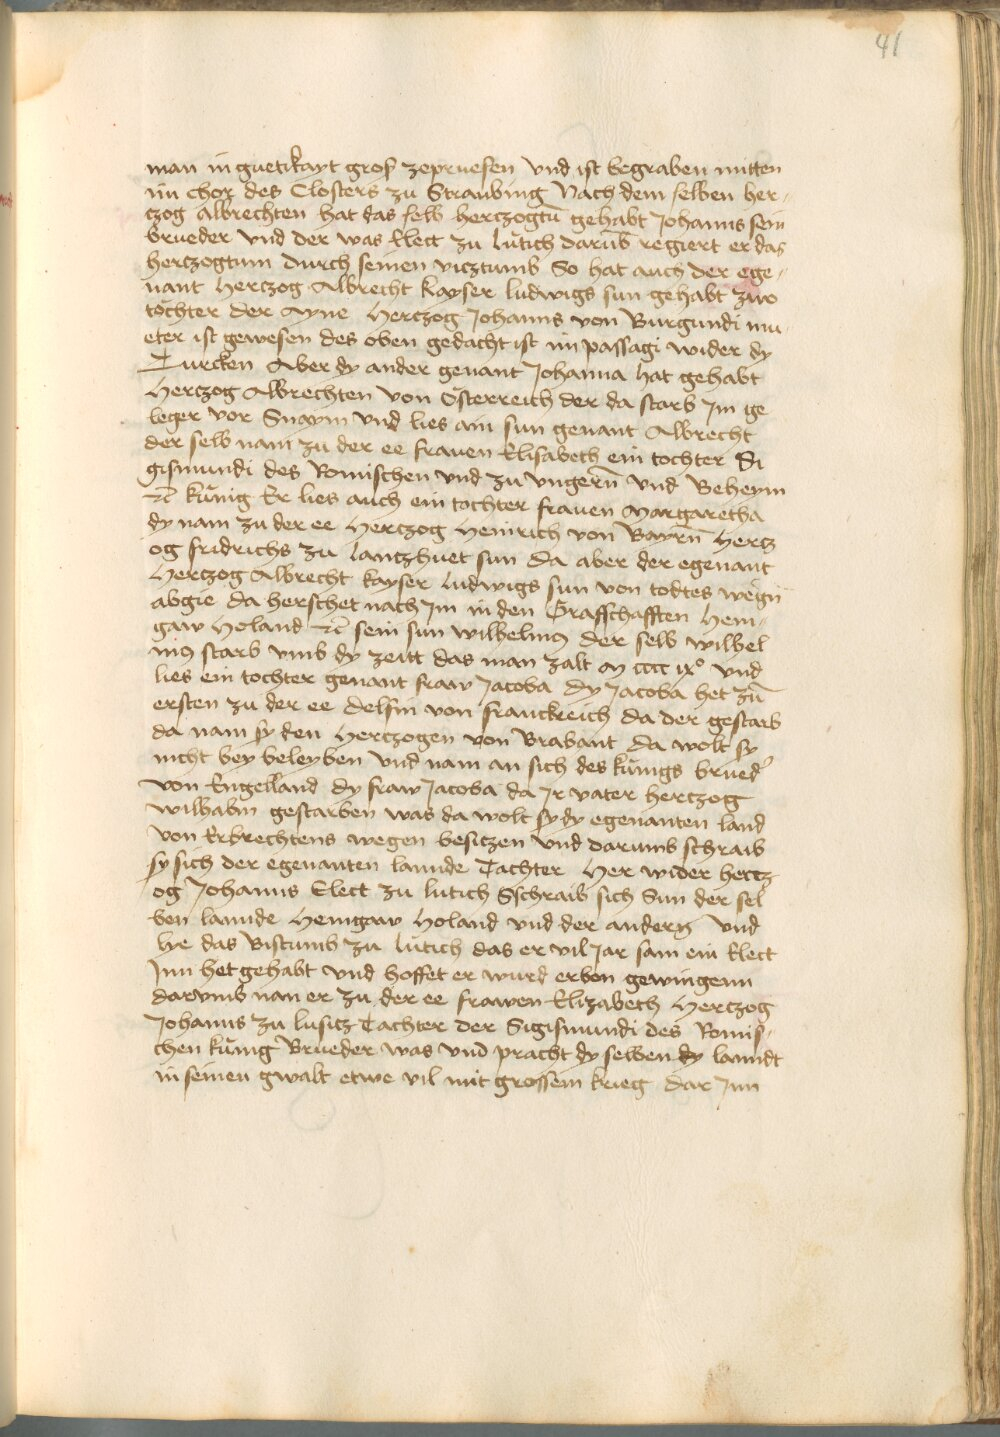 41
man in guetikayt gros zepruefen Vnd ist begraben mitten
im Chor des Closters zu Straubing Nach dem selben her-
czog Albrechten hat das selb herczogtū gehabt Johanns sein
brueder Vnd der was Elect zu lůtich darūb regiert er das
herczogtum durch seinen vicztumb So hat auch der ege-
nant Herczog Albrecht kayser ludwigs sun gehabt zwo
töchter der Ayne Herczog Johanns von Burgundi mu-
eter ist gewesen des oben gedacht ist im passagi wider dy
Turcken Aber dy ander genant Johanna hat gehabt
Herczog Albrechten von Österreich der da starb Im ge
leger vor Snaym vnd lies ain sun genant Albrecht
der selb nam zu der ee frauen Elisabeth ein tochter Si
gismundi des Romischen vnd zu vngerñ vnd Beheym
etc̄ kůnig Er lies auch ein tochter frauen Margaretha
dy nam zu der ee Herczog Heinrich von Bayrñ Hercz
og fridrichs zu lanczhuet sun da aber der egenant
Herczog Albrecht kayser ludwigs sun von todtes wegñ
abgie da herschet nach Im in den Graffschafften Hein-
gaw Holand etc̄ sein sun wilhelmꝰ der selb wilhel
mꝰ starb vmb dy zeitt das man zalt M cccc ixᵒ vnd
lies ein tochter genant fraw Jacoba dy Jacoba het zū
ersten zu der ee delfin von franckreich da der gestarb
da nam sy den Herczogen von Brabant da wolt sy
nicht bey beleyben Vnd nam an sich des kůnigs brued᾽
von Engelland dy fraw Jacoba da Jr vater herczog
wilhalm gestarben was da wolt sy dy egenanten land
von Erbrechtens wegen besiczen vnd darumb schraib
sy sich der egenanten lannde Tachter Her wider hercz
og Johanns Elect zu lutich Sschraib sich Sun der sel
ben lannde Heingaw Holand vnd der andern vnd
lye das Bistumb zu lůtich das er vil Jar sam ein Elect
Inn het gehabt vnd hoffet er wurd erben gewingenn
darvmb nan er zu der ee frawen Elizabeth Herczog
Johanns zu lusicz Tachter der Sigismundi des Romis-
chen kůnig Brueder was vnd pracht dy selben dy lanndt
in seinen gwalt etwe vil mit grossem krieg dar Inn